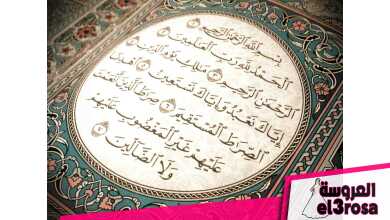 بِسْمِ اللَّهِ الرَّحْمَٰنِ الرَّحِيمِ ۝١
الْحَمْدُ لِلَّهِ رَبِّ الْعَالَمِينَ ۝٢
الرَّحْمَٰنِ الرَّحِيمِ ۝٣ مَالِكِ يَوْمِ الدِّينِ ۝٤
إِيَّاكَ نَعْبُدُ وَإِيَّاكَ نَسْتَعِينُ ۝٥ اهْدِنَا
الصِّرَاطَ الْمُسْتَقِيمَ ۝٦ صِرَاطَ الَّذِينَ أَنْعَمْتَ
عَلَيْهِمْ غَيْرِ الْمَغْضُوبِ عَلَيْهِمْ
وَلَا الضَّالِّينَ ۝٧
العروسة
el3rosa